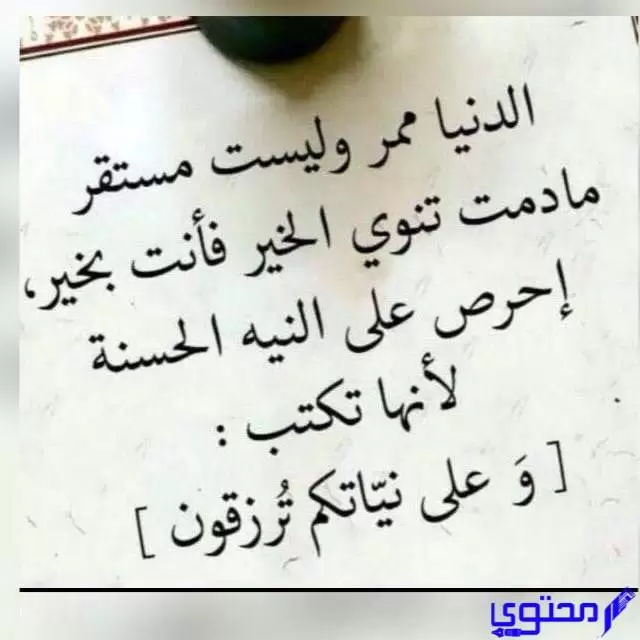 الدنيا ممر وليست مستقر
مادمت تنوي الخير فأنت بخير،
إحرص على النيه الحسنة
لأنها تكتب :
[ وَ على نيّاتكم تُرزقون ]
محتوى